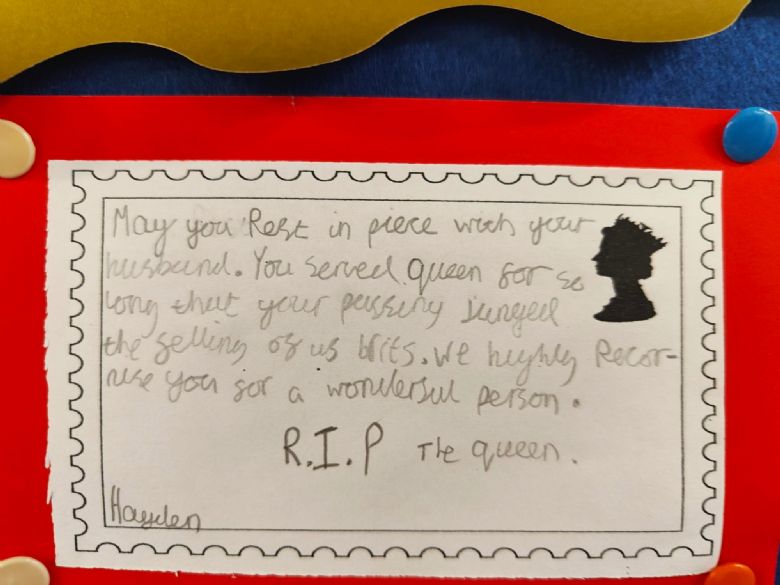 May you Rest in piece with your
husband. You served queen for so
long that your passing
the felling of us brits. We highly Recor-
nise you for a wonderful person.
R.I.P The queen.
Hayden